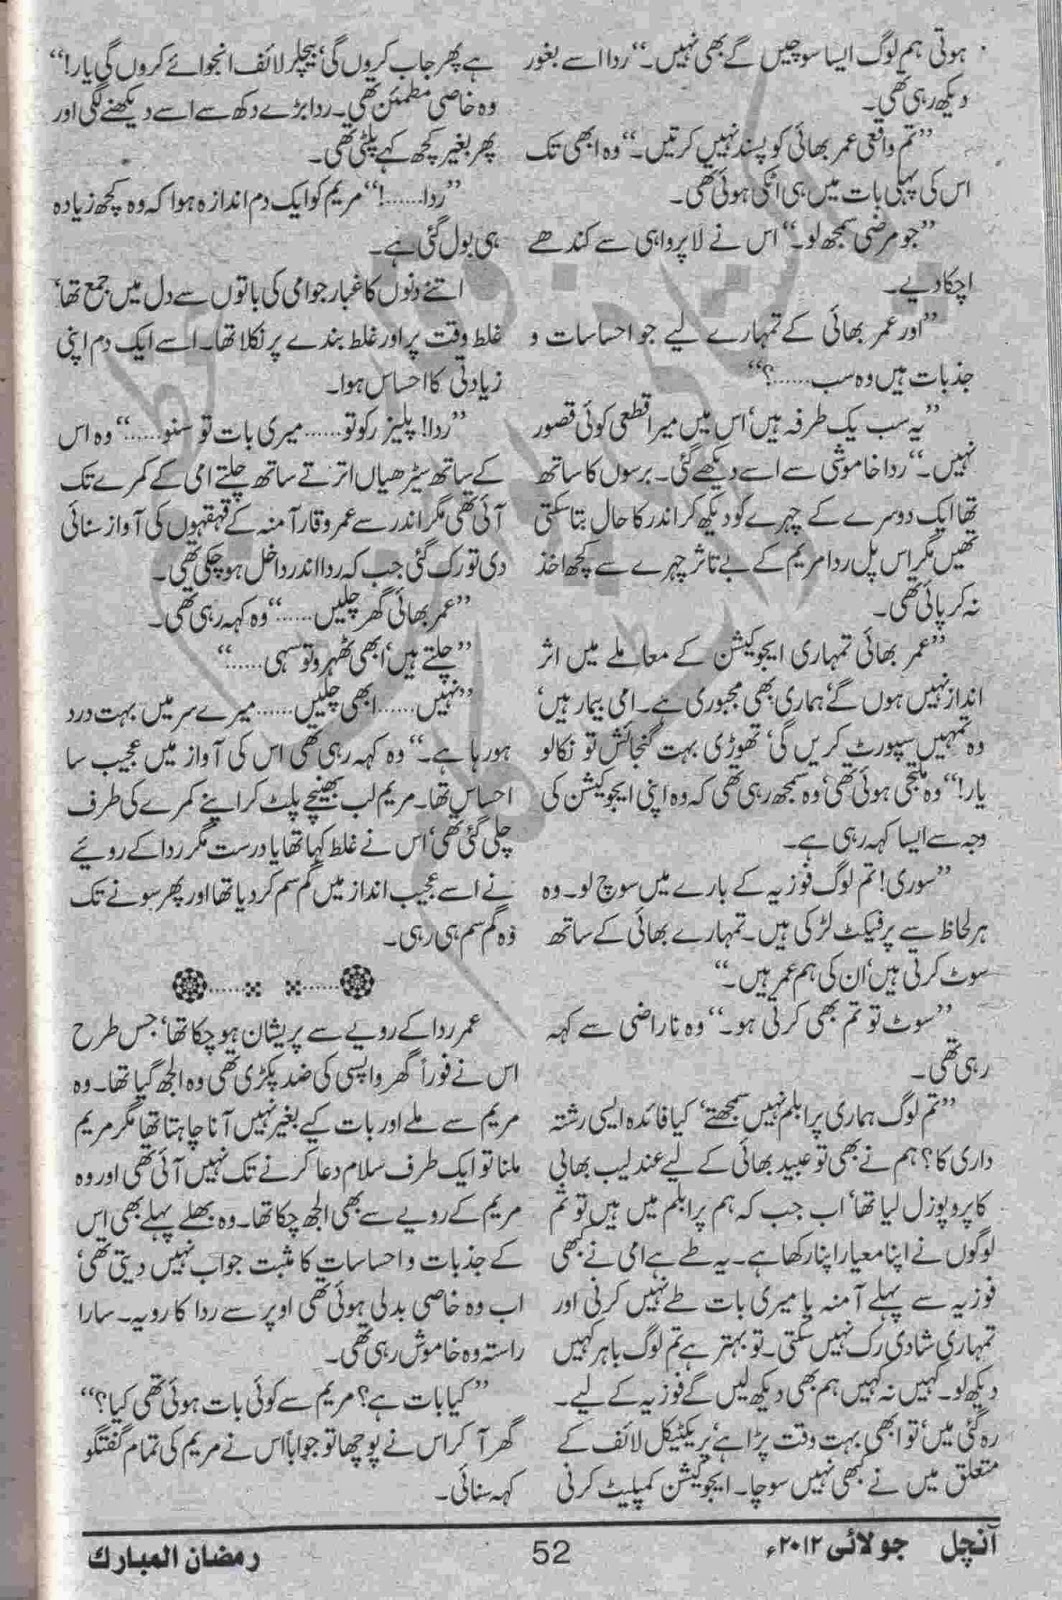 ہوتی ہم لوگ ایسا سوچیں گے بھی نہیں۔“ ردا اسے بغور
دیکھ رہی تھی۔
”تم واقعی عمر بھائی کو پسند نہیں کرتیں۔“ وہ ابھی تک
اس کی پہلی بات میں ہی اٹکی ہوئی تھی۔
”جو مرضی سمجھ لو۔“ اس نے لاپرواہی سے کندھے
اچکا دیے۔
”اور عمر بھائی کے تمہارے لیے جو احساسات و
جذبات ہیں وہ سب......؟“
”یہ سب یک طرفہ ہیں‘ اس میں میرا قطعی کوئی قصور
نہیں۔“ ردا خاموشی سے اسے دیکھے گئی۔ برسوں کا ساتھ
تھا ایک دوسرے کے چہرے کو دیکھ کر اندر کا حال بتا سکتی
تھیں مگر اس پل ردا مریم کے بے تاثر چہرے سے کچھ اخذ
نہ کر پائی تھی۔
”عمر بھائی تمہاری ایجوکیشن کے معاملے میں اثر
انداز نہیں ہوں گے‘ ہماری بھی مجبوری ہے۔ امی بیمار ہیں‘
وہ تمہیں سپورٹ کریں گی‘ تھوڑی بہت گنجائش تو نکالو
یار!“ وہ ملتجی ہوئی تھی‘ وہ سمجھ رہی تھی کہ وہ اپنی ایجوکیشن کی
وجہ سے ایسا کہہ رہی ہے۔
”سوری! تم لوگ فوزیہ کے بارے میں سوچ لو۔ وہ
ہر لحاظ سے پرفیکٹ لڑکی ہیں۔ تمہارے بھائی کے ساتھ
سوٹ کرتی ہیں‘ ان کی ہم عمر ہیں۔“
”سوٹ تو تم بھی کرتی ہو۔“ وہ ناراضی سے کہہ
رہی تھی۔
”تم لوگ ہماری پرابلم نہیں سمجھتے‘ کیا فائدہ ایسی رشتہ
داری کا؟ ہم نے بھی تو عبید بھائی کے لیے عندلیب بھابی
کا پروپوزل لیا تھا‘ اب جب کہ ہم پرابلم میں ہیں تو تم
لوگوں نے اپنا معیار اپنا رکھا ہے۔ یہ طے ہے امی نے کبھی
فوزیہ سے پہلے آمنہ یا میری بات طے نہیں کرنی اور
تمہاری شادی رک نہیں سکتی۔ تو بہتر ہے تم لوگ باہر کہیں
دیکھ لو۔ کہیں نہ کہیں ہم بھی دیکھ لیں گے فوزیہ کے لیے۔
رہ گئی میں‘ تو ابھی بہت وقت پڑا ہے‘ پریکٹیکل لائف کے
متعلق میں نے کبھی نہیں سوچا۔ ایجوکیشن کمپلیٹ کرنی
ہے پھر جاب کروں گی‘ بیچلر لائف انجوائے کروں گی یار!“
وہ خاصی مطمئن تھی۔ ردا بڑے دکھ سے اسے دیکھنے لگی اور
پھر بغیر کچھ کہے پلٹی تھی۔
”ردا......!“ مریم کو ایک دم اندازہ ہوا کہ وہ کچھ زیادہ
ہی بول گئی ہے۔
اتنے دنوں کا غبار جو امی کی باتوں سے دل میں جمع تھا‘
غلط وقت پر اور غلط بندے پر نکلا تھا۔ اسے ایک دم اپنی
زیادتی کا احساس ہوا۔
”ردا! پلیز رکو تو...... میری بات تو سنو......“ وہ اس
کے ساتھ سیڑھیاں اترتے ساتھ چلتے امی کے کمرے تک
آئی تھی مگر اندر سے عمر وقار آمنہ کے قہقہوں کی آواز سنائی
دی تو رک گئی جب کہ ردا اندر داخل ہو چکی تھی۔
”عمر بھائی گھر چلیں......“ وہ کہہ رہی تھی۔
”چلتے ہیں‘ ابھی ٹھہرو تو سہی......“
”نہیں...... ابھی چلیں...... میرے سر میں بہت درد
ہو رہا ہے۔“ وہ کہہ رہی تھی اس کی آواز میں عجیب سا
احساس تھا۔ مریم لب بھینچے پلٹ کر اپنے کمرے کی طرف
چلی گئی تھی‘ اس نے غلط کہا تھا یا درست مگر ردا کے رویئے
نے اسے عجیب انداز میں گم سم کر دیا تھا اور پھر سونے تک
وہ گم سم ہی رہی۔
عمر ردا کے رویے سے پریشان ہو چکا تھا‘ جس طرح
اس نے فوراً گھر واپسی کی ضد پکڑی تھی وہ الجھ گیا تھا۔ وہ
مریم سے ملے اور بات کیے بغیر نہیں آنا چاہتا تھا مگر مریم
ملنا تو ایک طرف سلام دعا کرنے تک نہیں آئی تھی اور وہ
مریم کے رویے سے بھی الجھ چکا تھا۔ وہ بھلے پہلے بھی اس
کے جذبات و احساسات کا مثبت جواب نہیں دیتی تھی‘
اب وہ خاصی بدلی ہوئی تھی اوپر سے ردا کا رویہ۔ سارا
راستہ وہ خاموش رہی تھی۔
”کیا بات ہے؟ مریم سے کوئی بات ہوئی تھی کیا؟“
گھر آ کر اس نے پوچھا تو جواباً اس نے مریم کی تمام گفتگو
کہہ سنائی۔
آنچل جولائی ۲۰۱۲ء 52 رمضان المبارک